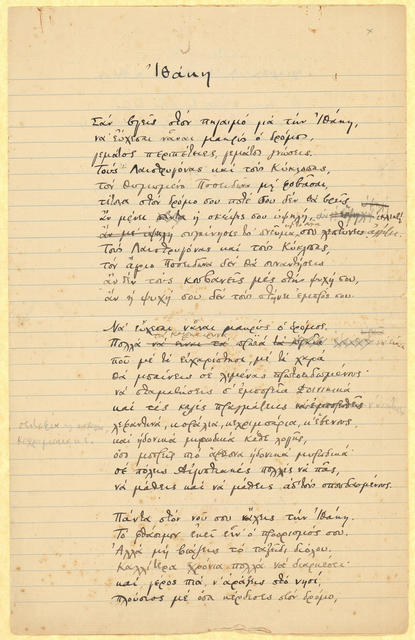 Ἰθάκη
Σαν βγεῖς στὸν πηγαιμὸ γιὰ τὴν Ἰθάκη,
νὰ εὔχεσαι νἆναι μακρὺς ὁ δρόμος,
γεμάτος περιπέτειες, γεμάτος γνώσεις.
Τοὺς Λαιστρυγόνας καὶ τοὺς Κύκλωπας,
τὸν θυμωμένο Ποσειδῶνα μὴ φοβᾶσαι,
τέτοια στὸν δρόμο σου ποτέ σου δὲν θὰ βρεῖς,
ἂν μένει ἡ σκέψις σου ὑψηλή, ἂν ἐκλεκτὴ
συγκίνησις τὸ πνεῦμα σου ἀγγίζει.
Τοὺς Λαιστρυγόνας καὶ τοὺς Κύκλωπας,
τὸν ἄγριο Ποσειδῶνα δὲν θὰ συναντήσεις
ἂν δὲν τοὺς κουβανεῖς μὲς στὴν ψυχή σου,
ἂν ἡ ψυχή σου δὲν τοὺς στήνει ἐμπρός σου.
Νὰ εὔχεσαι νἆναι μακρὺς ὁ δρόμος.
Πολλὰ τὰ καλοκαιρινὰ πρωϊὰ
ποὺ μὲ τί εὐχαρίστησι, μὲ τί χαρὰ
θὰ μπαίνεις σὲ λιμένας πρωτοειδωμένους·
νὰ σταματήσεις σ' ἐμπορεῖα Φοινικικὰ
καὶ τὲς καλὲς πραγμάτειες
σεντέφια καὶ
κεχριμπάρια κ' ἔβενους,
καὶ ἡδονικὰ μυρωδικὰ κάθε λογῆς,
ὅσο μπορεῖς πιὸ ἄφθονα ἡδονικὰ μυρωδικά·
σὲ πόλεις Αἰγυπτιακὲς πολλὲς νὰ πᾷς,
νὰ μάθεις καὶ νὰ μάθεις ἀπ' τοὺς σπουδασμένους.
Πάντα στὸν νοῦ σου νἄχεις τὴν Ἰθάκη.
Τὸ φθάσιμον ἐκεῖ εἶν' ὁ προορισμός σου.
Ἀλλὰ μὴ βιάζεις τὸ ταξεῖδι διόλου.
Καλλίτερα χρόνια πολλὰ νὰ διαρκέσει·
καὶ γέρος πιὰ ν' ἀράξεις στὸ νησί,
πλούσιος μὲ ὅσα κέρδισες στὸν δρόμο,